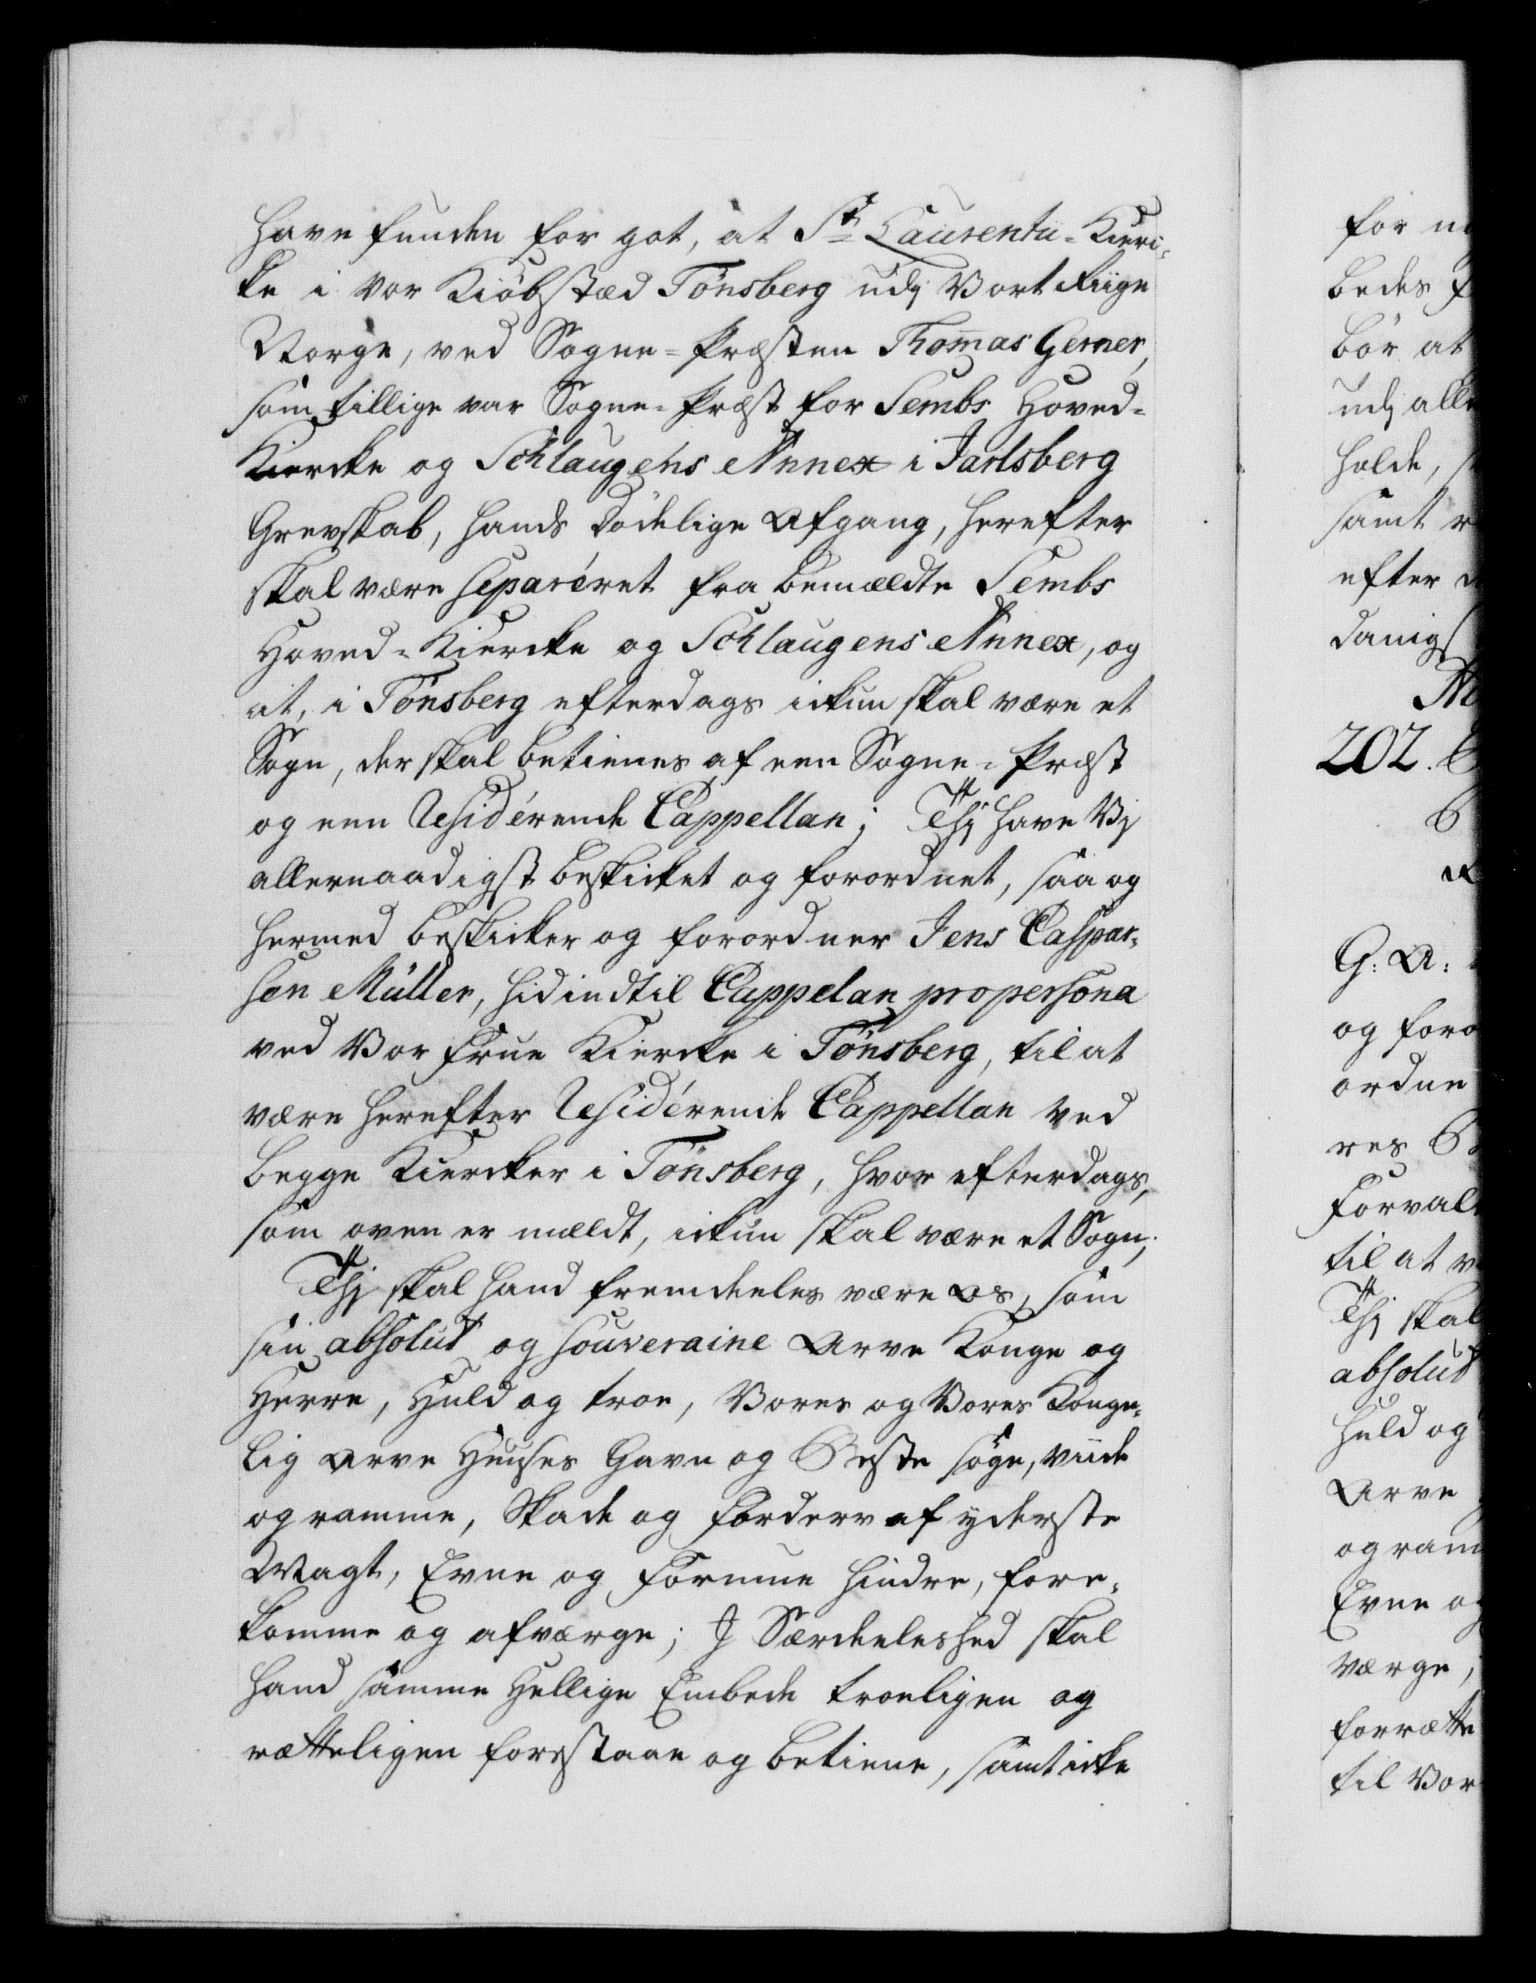 have funden for got, at St Laurentii-Kier-
ke i vor Kiöbstæd Tönsberg udj Vort Riige
Norge, ved Sogne-Præsten Thom̅as Gerner,
som tillige var Sogne-Præst for Sembs Hoved-
Kiercke og Schlaugens Annex i Jarlsberg
Grevskab, hands Dödelige Afgang, herefter
skal være separéret fra bemældte Sembs
Hoved-Kiercke og Schlaugens Annex, og
at, i Tönsberg efterdags ickun skal være et
Sogn, der skal betienes af een Sogne-Præst
og een Residérende Cappellan; Thj have Vj
allernaadigst beskicket og forordnet, saa og
hermed beskicker og forordner Jens Caspar-
sen Müller, hidindtil Cappelan pro persona
ved Vor Frue Kiercke i Tönsberg, til at
være herefter Residérende Cappellan ved
begge Kiercker i Tönsberg, hvor efterdags,
som oven er mældt, ickun skal være et Sogn;
Thj skal hand fremdeeles være os, som
sin absolut og souveraine Arve Konge og
Herre, Huld og troe, Vores og Vores Konge-
lig Arve Huuses Gavn og Beste söge, viide
og ramme, Skade og Forderv af yderste
Magt, Evne og Formue hindre, fore-
komme og afværge; J Særdeeleshed skal
hand samme Hellige Embede troeligen og
rætteligen forestaae og betiene, samt icke
for
bedes
bör at
udj alle
holde,
samt
efter
danig
202.
G: A:
og foro
ordne
res
Forval
til at
Thj skal
absolut
Huld og
Arve
og ram
Evne og
værge,
forrætte
til Vor